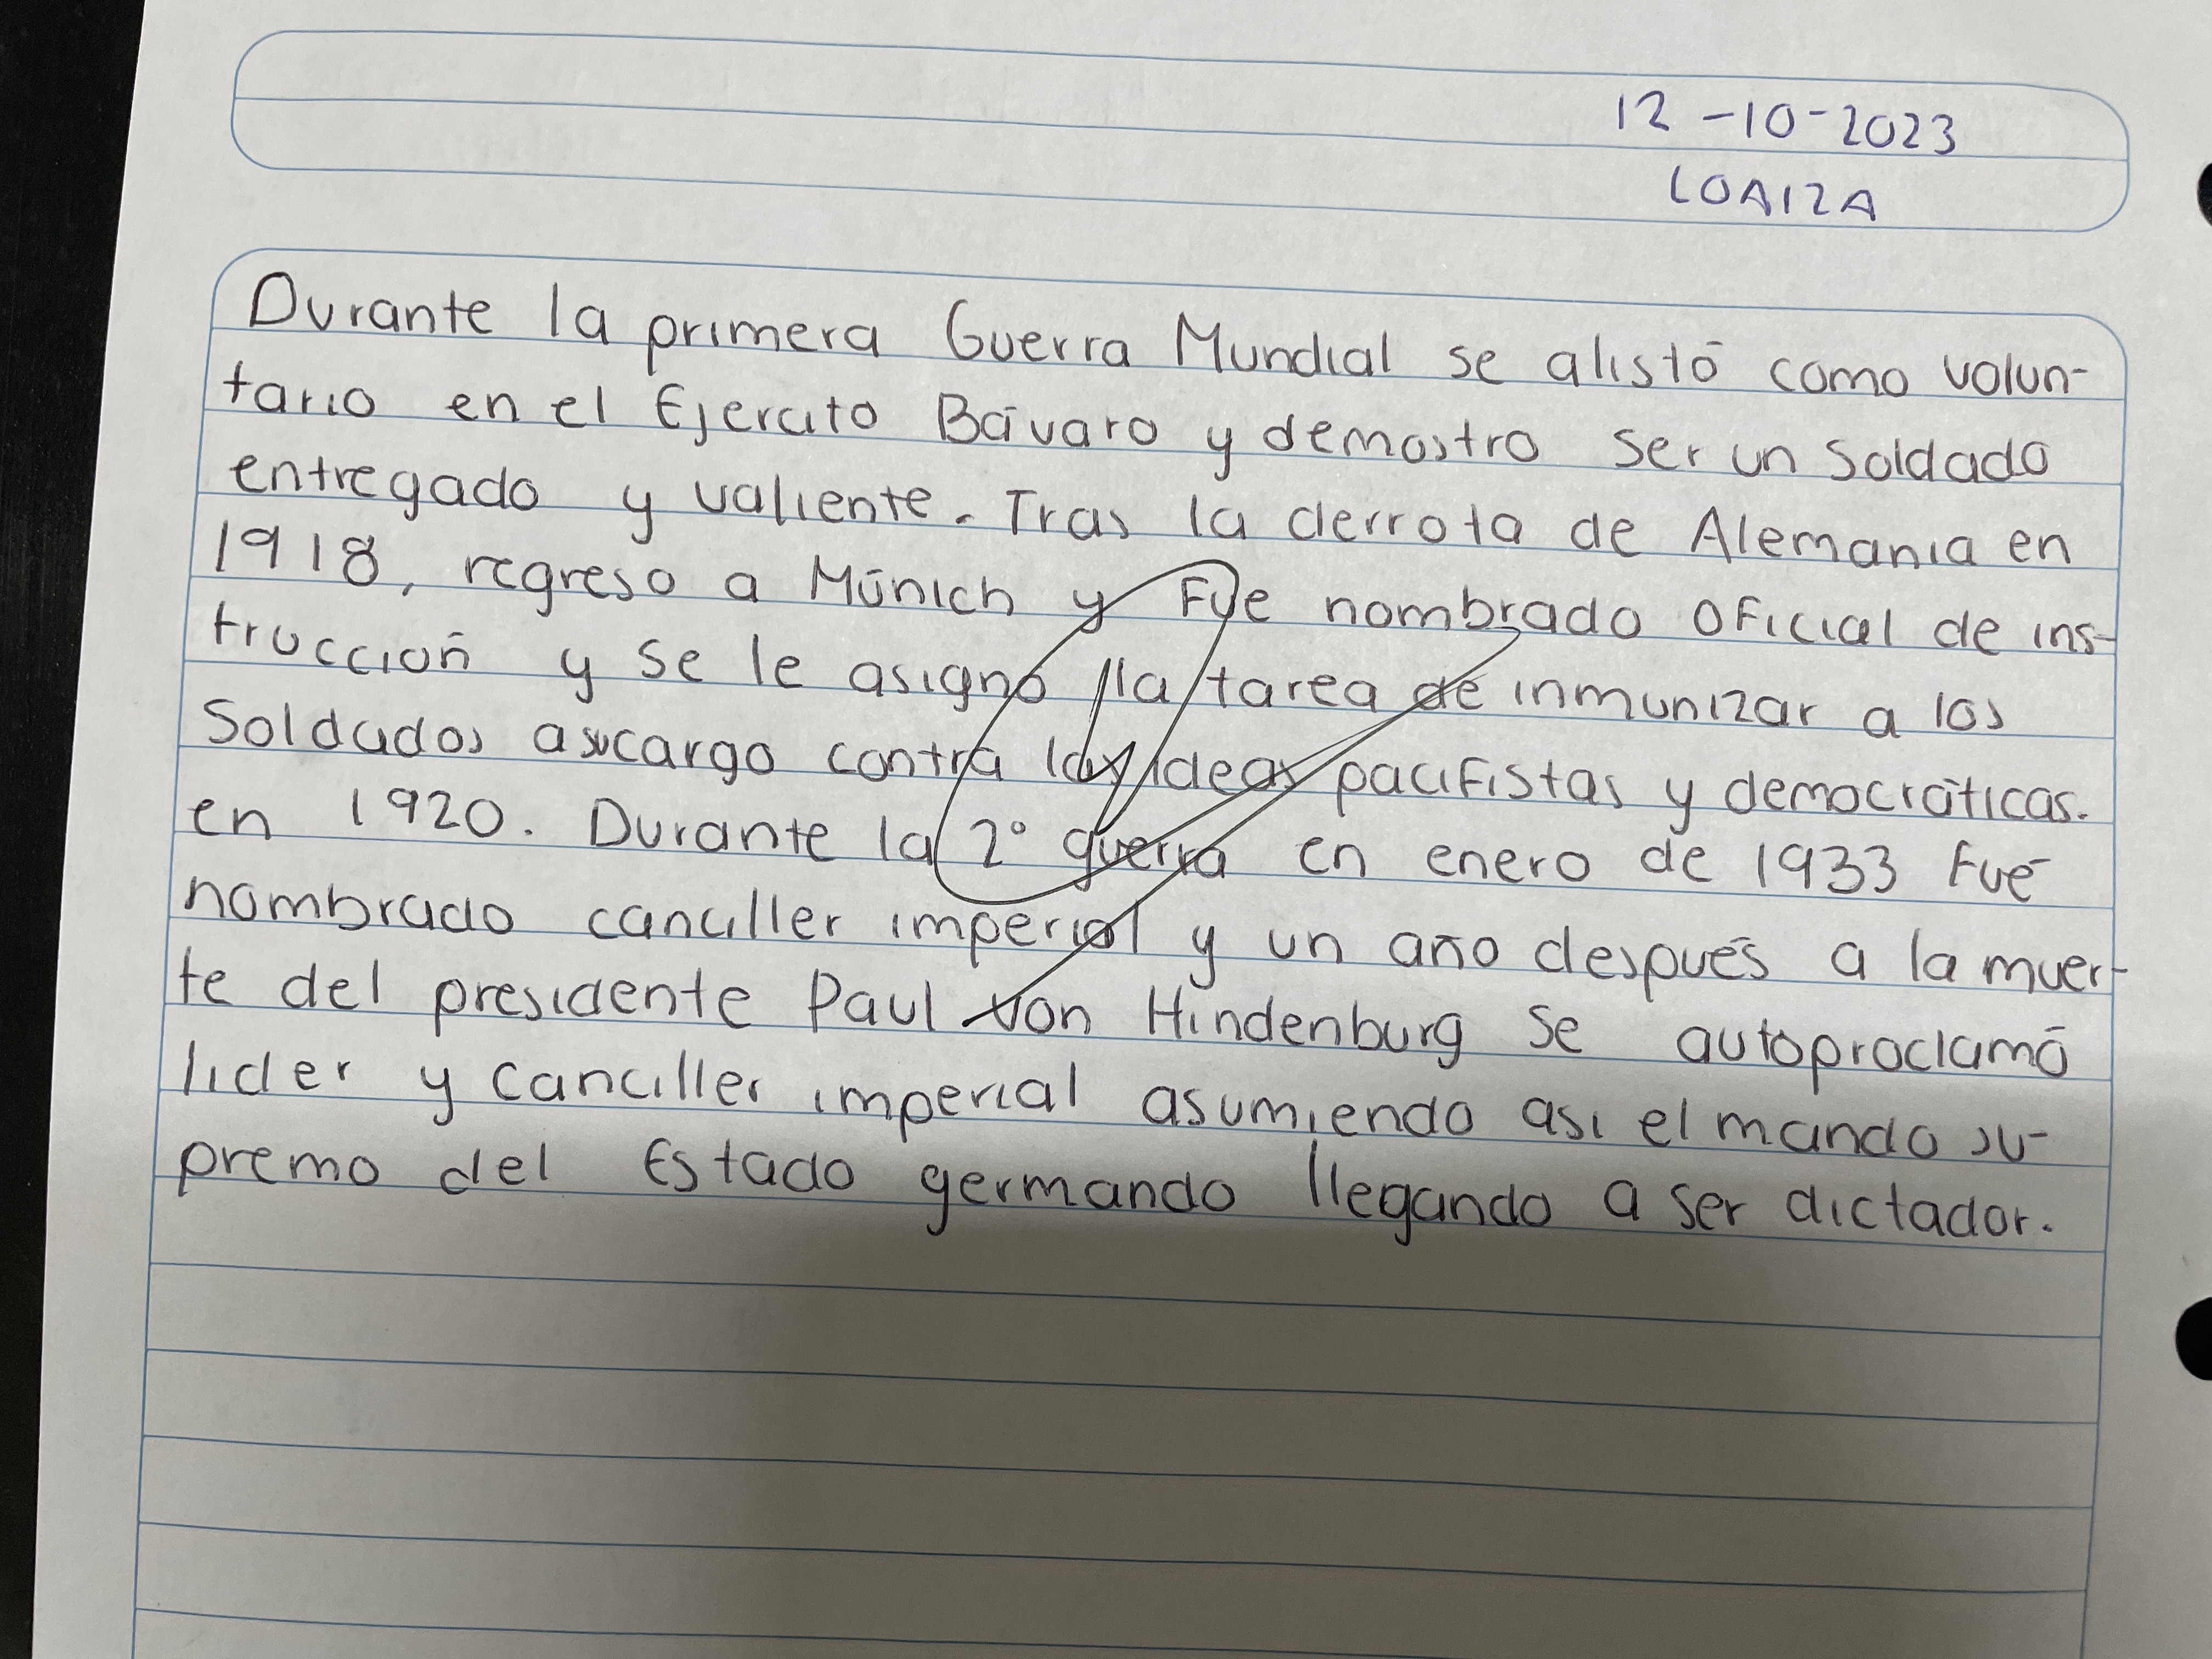 12-10-2023
LOAIZA
Durante la primera Guerra Mundial se alistó como volun-
tario en el Ejercito Bávaro y demostro ser un soldado
entregado y valiente. Tras la derrota de Alemania en
1918, regreso a Múnich y fue nombrado oficial de ins-
trucción y se le asignó la tarea de inmunizar a los
soldados a su cargo contra las ideas pacifistas y democráticas.
en 1920. Durante la 2° guerra en enero de 1933 fué
nombrado canciller imperial y un año después a la muer-
te del presidente Paul von Hindenburg se autoproclamó
lider y canciller imperial asumiendo asi el mando su-
premo del Estado germando llegando a ser dictador.